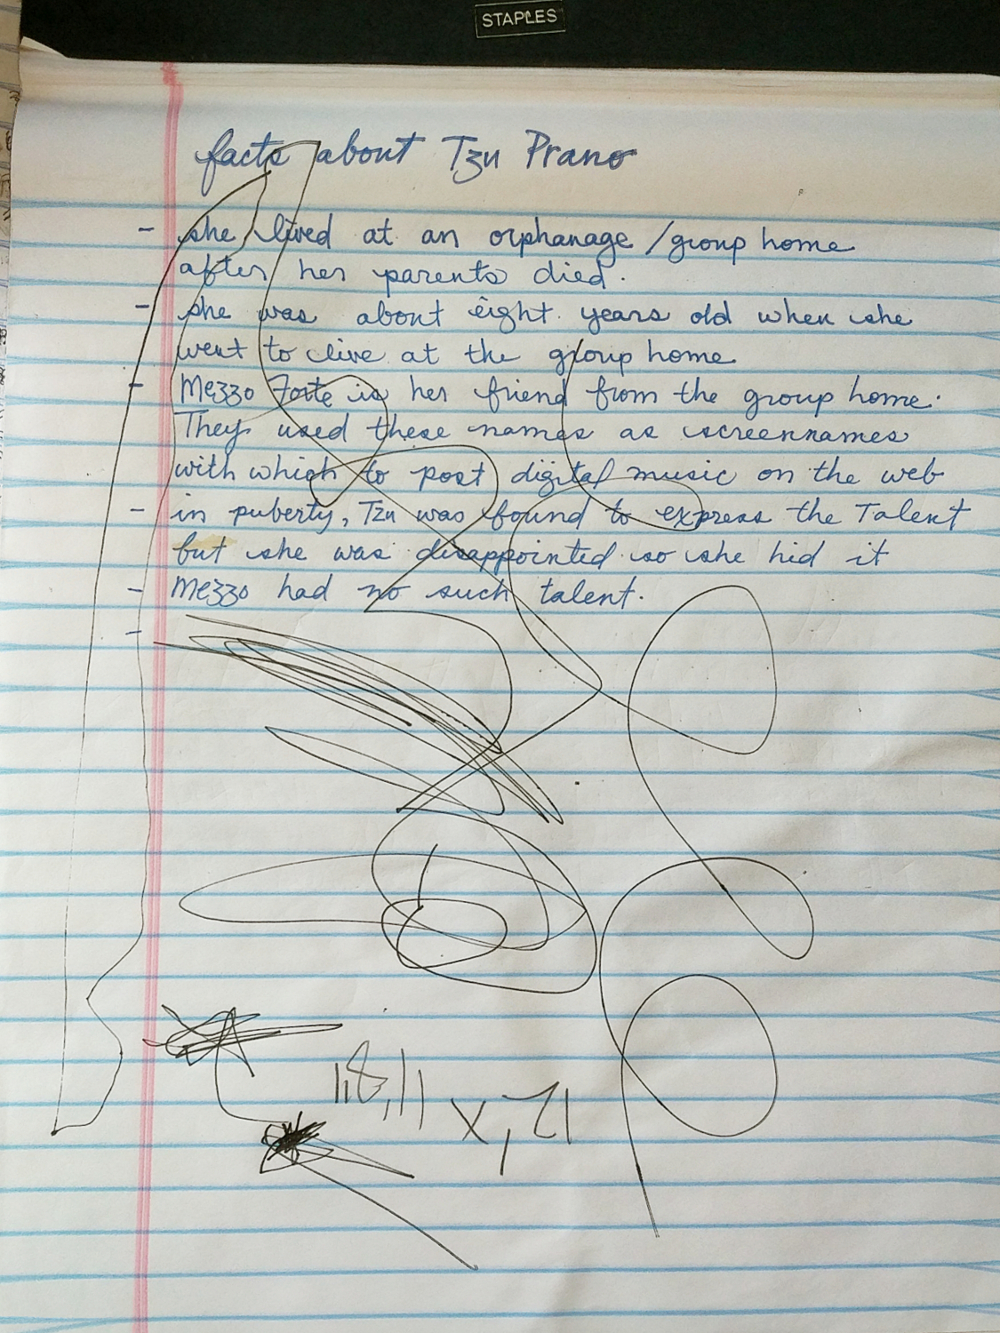 STAPLES
facts about Tzu Prano
- she lived at an orphanage / group home
after her parents died.
- she was about eight years old when she
went to live at the group home
- Mezzo Forte is her friend from the group home.
They used these names as screennames
with which to post digital music on the web
- in puberty, Tzu was found to express the Talent
but she was disappointed so she hid it
- Mezzo had no such talent.
-